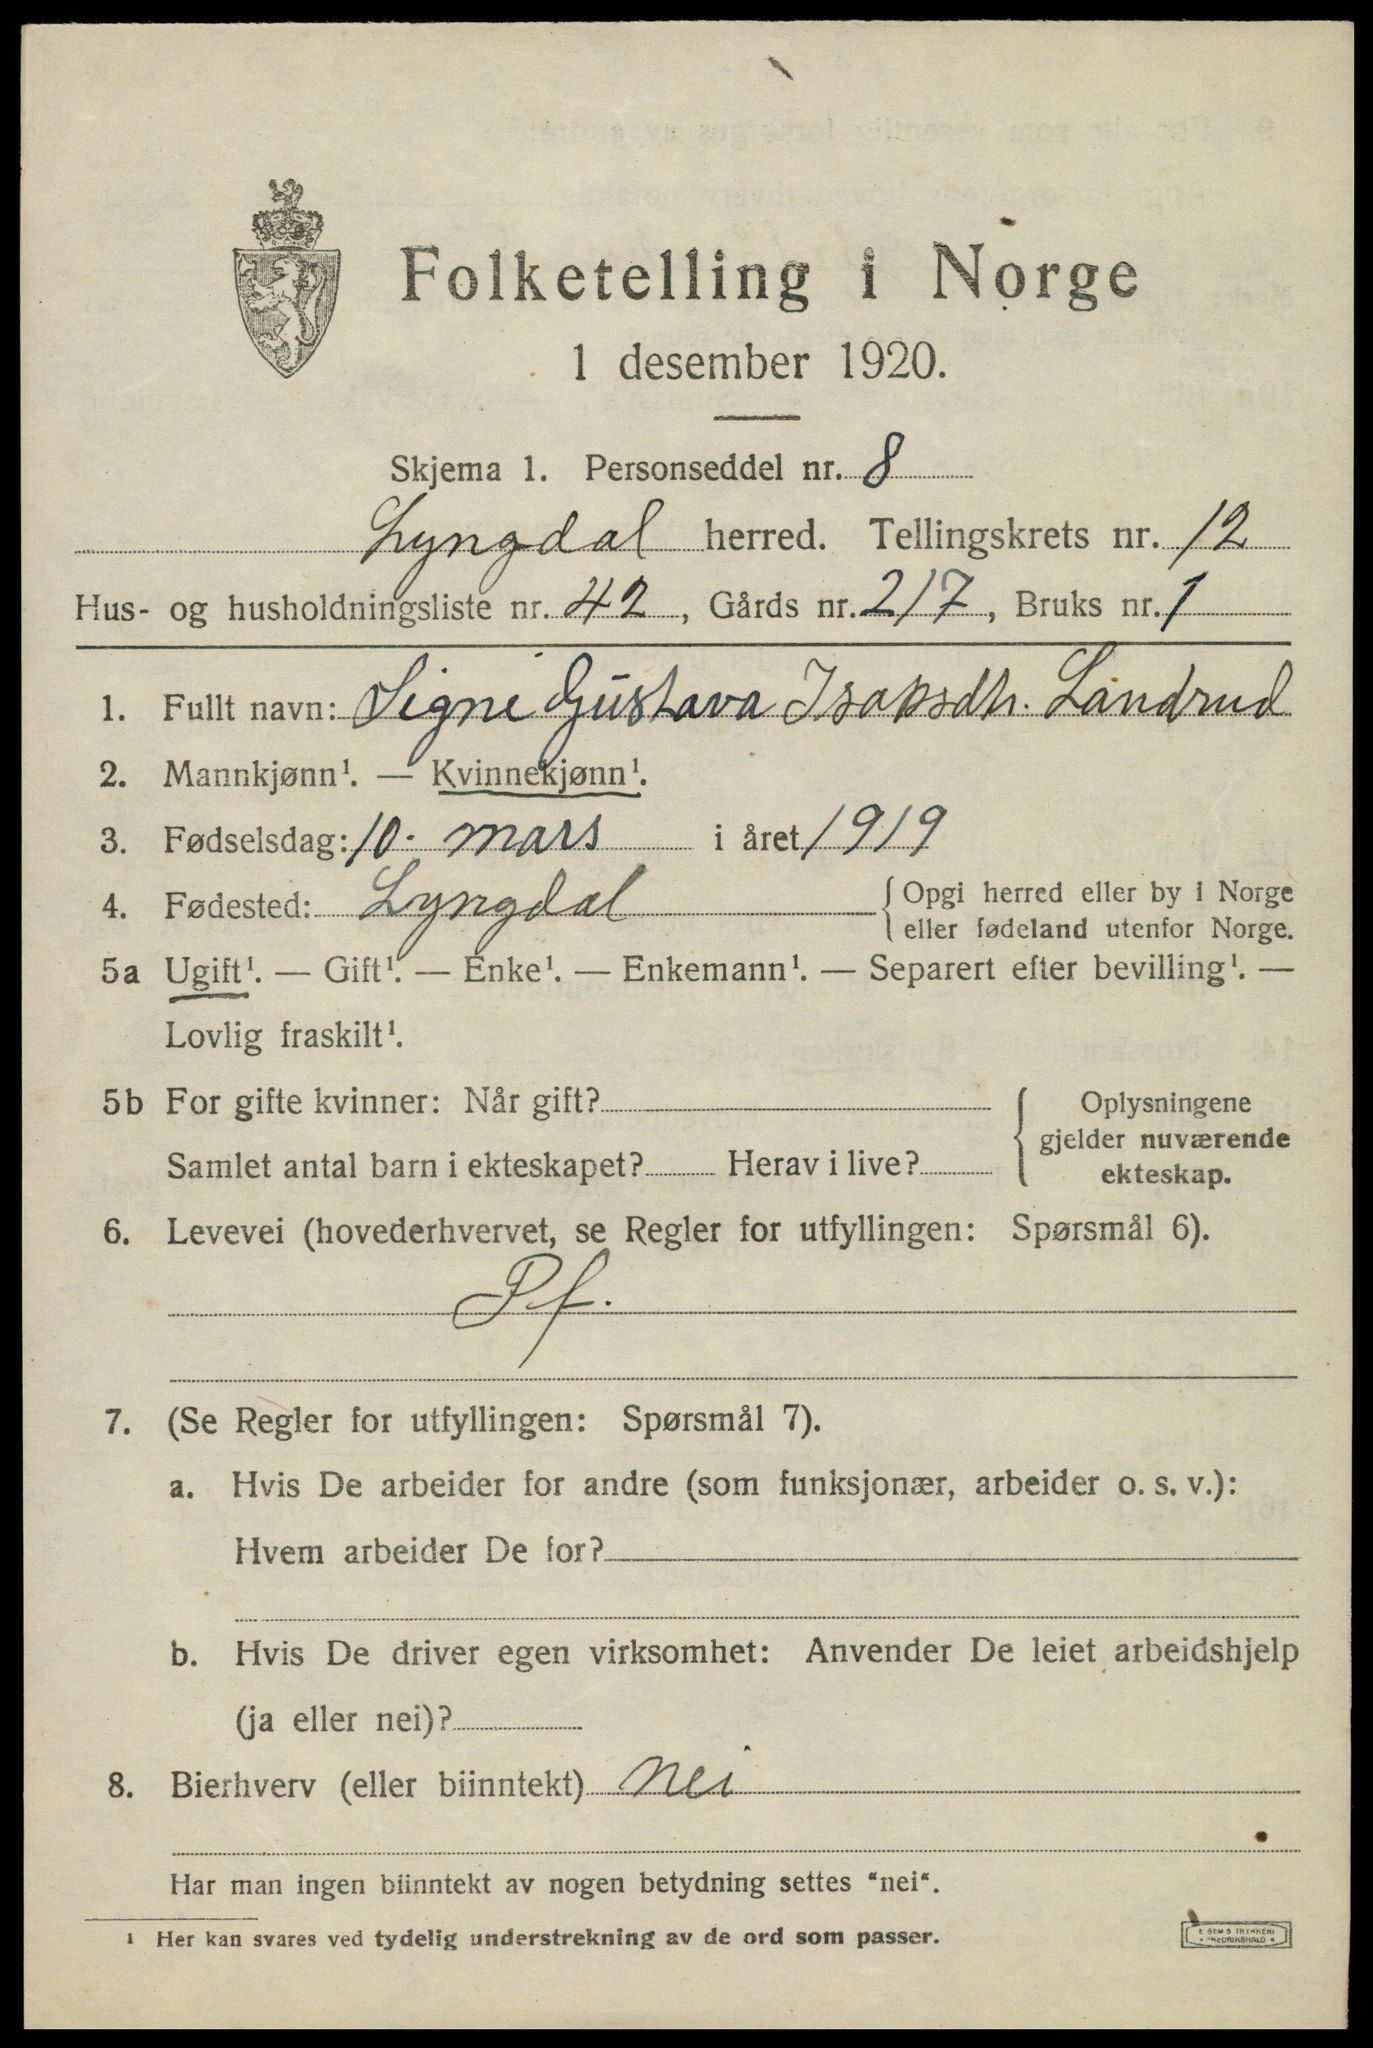 Folketelling i Norge
1 desember 1920.
Skjema 1. Personseddel nr. 8
Lyngdal herred. Tellingskrets nr. 12
Hus- og husholdningsliste nr. 42, Gårds nr. 217, Bruks nr. 1
1. Fullt navn: Signe Gustava Isaksdtr. Landrud
2. Mannkjønn¹. — Kvinnekjønn¹.
3. Fødselsdag: 10. mars i året 1919
4. Fødested: Lyngdal { Opgi herred eller by i Norge
eller fødeland utenfor Norge.
5a Ugift¹. — Gift¹. — Enke¹. — Enkemann¹. — Separert efter bevilling¹. —
Lovlig fraskilt¹.
5b For gifte kvinner: Når gift? { Oplysningene
gjelder nuværende
Samlet antal barn i ekteskapet? Herav i live? ekteskap.
6. Levevei (hovederhvervet, se Regler for utfyllingen: Spørsmål 6).
Pf.
7. (Se Regler for utfyllingen: Spørsmål 7).
a. Hvis De arbeider for andre (som funksjonær, arbeider o. s. v.):
Hvem arbeider De for?
b. Hvis De driver egen virksomhet: Anvender De leiet arbeidshjelp
(ja eller nei)?
8. Bierhverv (eller biinntekt) nei
Har man ingen biinntekt av nogen betydning settes "nei".
¹ Her kan svares ved tydelig understrekning av de ord som passer.